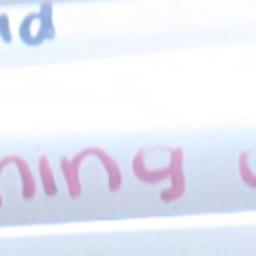 nd
ning